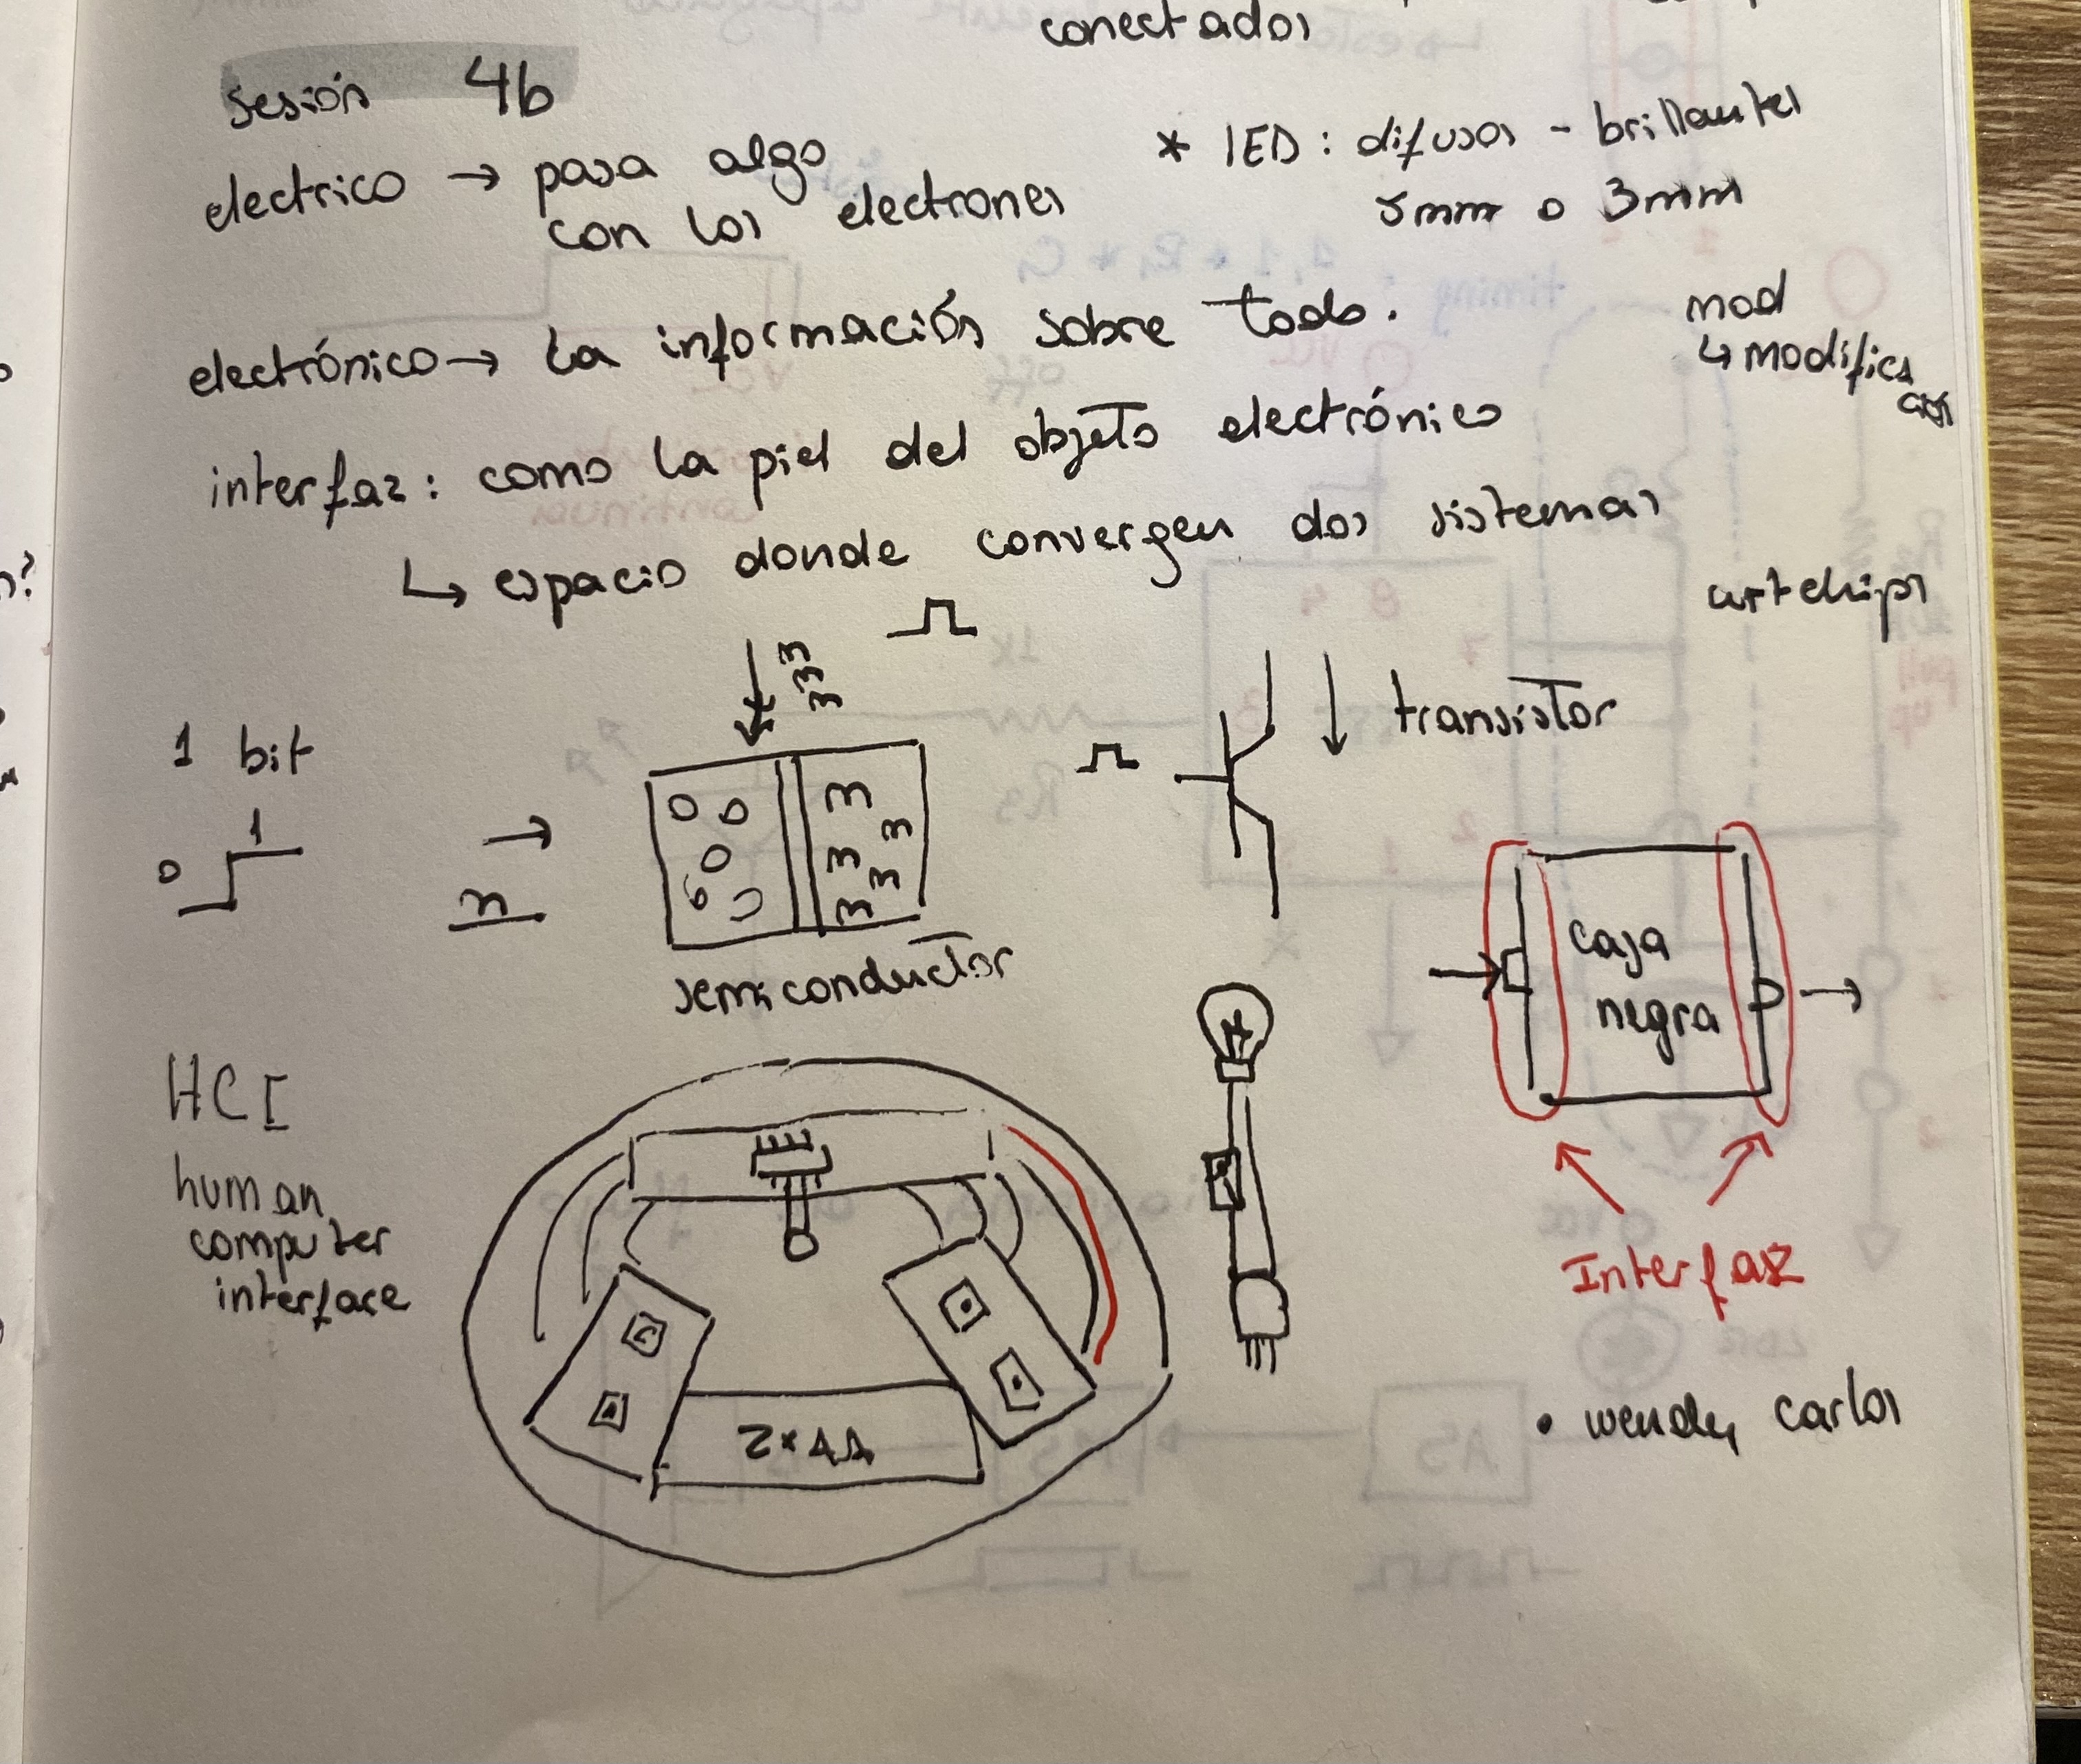 conectados
sesión 4b
electrico → pasa algo
con los electrones
* LED : difusos - brillantes
5mm o 3mm
electrónico → La información sobre todo.
mod
↳ modifica
ción
interfaz : como la piel del objeto electrónico
↳ espacio donde convergen dos sistemas
artchips
1 bit
0 1
n
m
m
m
m
m
m
m
m
semiconductor
transistor
caja
negra
Interfaz
HCI
human
computer
interface
2xAA
• wendy carlos